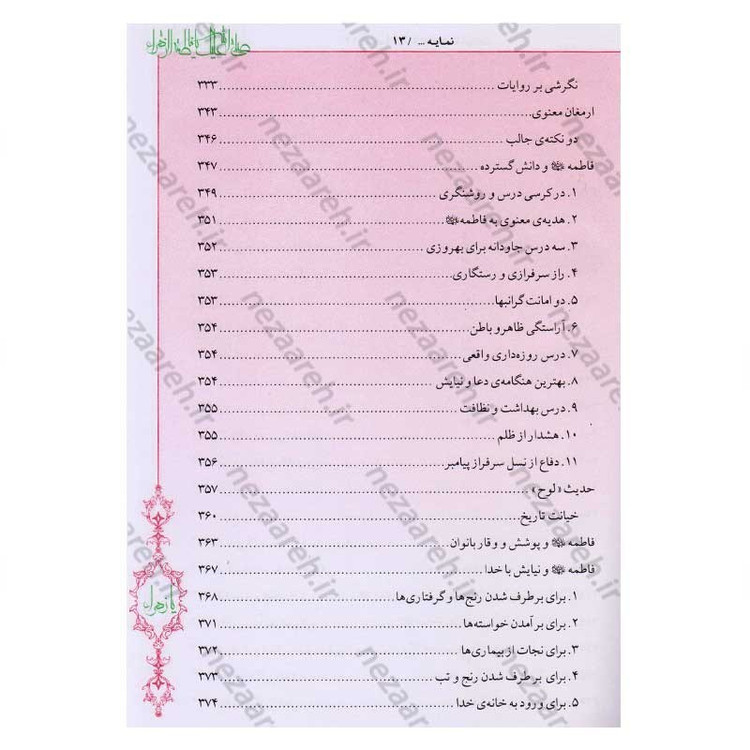 نمایه ... / ۱۳
نگرشی بر روایات ........ ۳۳۳
ارمغان معنوی ........ ۳۴۳
دو نکته‌ی جالب ........ ۳۴۶
فاطمه ﷺ و دانش گسترده ........ ۳۴۷
۱. در کرسی درس و روشنگری ........ ۳۴۹
۲. هدیه‌ی معنوی به فاطمه ........ ۳۵۱
۳. سه درس جاودانه برای بهروزی ........ ۳۵۲
۴. راز سرفرازی و رستگاری ........ ۳۵۳
۵. دو امانت گرانبها ........ ۳۵۳
۶. آراستگی ظاهر و باطن ........ ۳۵۴
۷. درس روزه‌داری واقعی ........ ۳۵۴
۸. بهترین هنگامه‌ی دعا و نیایش ........ ۳۵۴
۹. درس بهداشت و نظافت ........ ۳۵۵
۱۰. هشدار از ظلم ........ ۳۵۵
۱۱. دفاع از نسل سرفراز پیامبر ........ ۳۵۶
حدیث «لوح» ........ ۳۵۷
خیانت تاریخ ........ ۳۶۰
فاطمه و پوشش و وقار بانوان ........ ۳۶۳
فاطمه و نیایش با خدا ........ ۳۶۷
۱. برای برطرف شدن رنج‌ها و گرفتاری‌ها ........ ۳۶۸
۲. برای برآمدن خواسته‌ها ........ ۳۷۱
۳. برای نجات از بیماری‌ها ........ ۳۷۲
۴. برای برطرف شدن رنج و تب ........ ۳۷۳
۵. برای ورود به خانه‌ی خدا ........ ۳۷۴
یا زهراء
nezaareh.ir